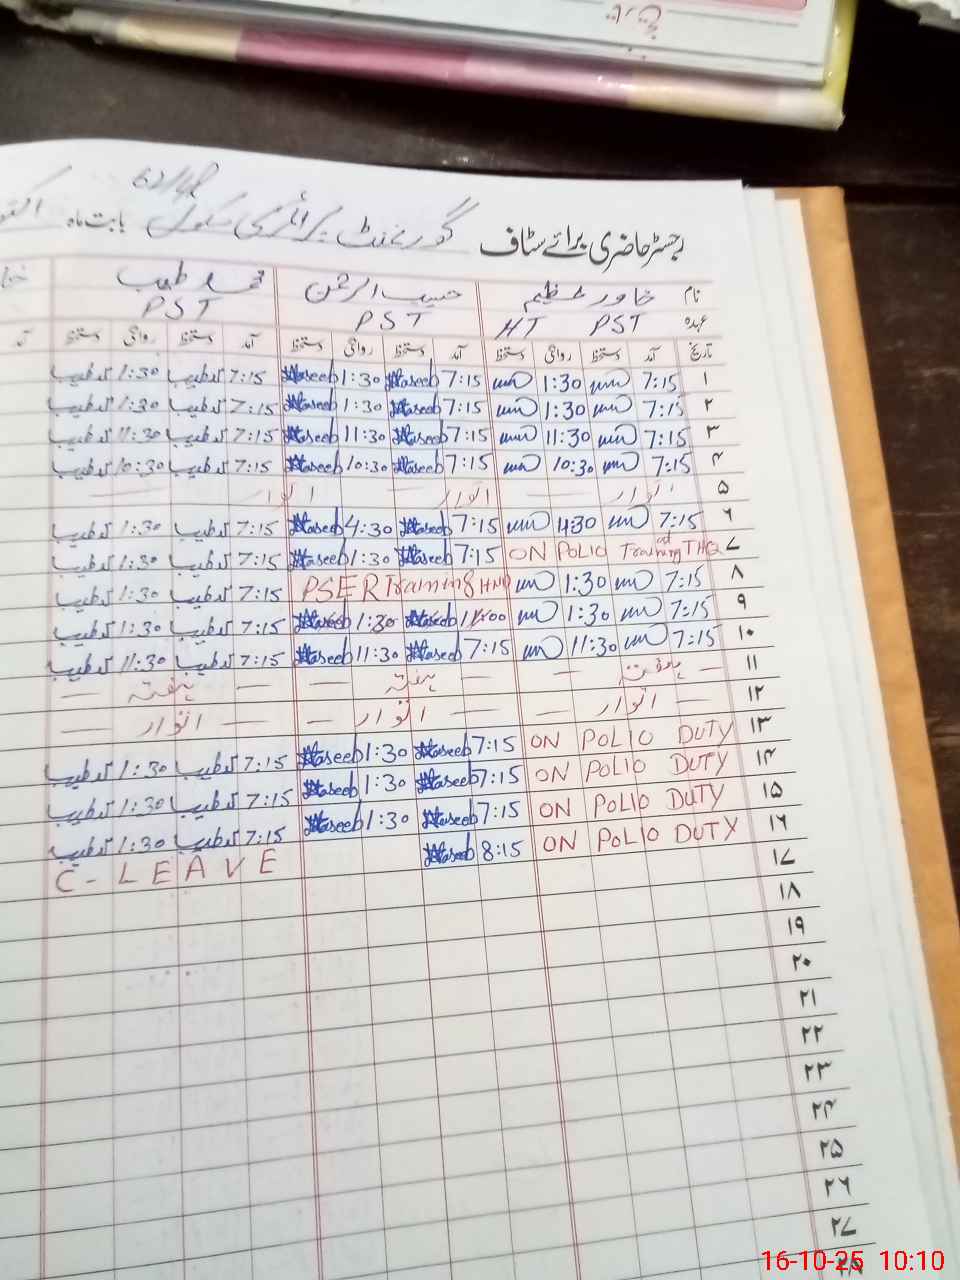 رجسٹر حاضری برائے سٹاف گورنمنٹ پرائمری سکول بابت ماہ
نام خاور عظیم حبیب الرحمن محمد طیب
عہدہ PST HT PST PST
تاریخ آمد دستخط روانگی دستخط آمد دستخط روانگی دستخط آمد دستخط روانگی دستخط آمد
۱ 7:15 1:30 7:15 Haseeb 1:30 Haseeb 7:15 طیب 1:30 طیب
۲ 7:15 1:30 7:15 Haseeb 1:30 Haseeb 7:15 طیب 1:30 طیب
۳ 7:15 11:30 7:15 Haseeb 11:30 Haseeb 7:15 طیب 11:30 طیب
۴ 7:15 10:30 7:15 Haseeb 10:30 Haseeb 7:15 طیب 10:30 طیب
۵ اتوار — اتوار — اتوار —
۶ 7:15 4:30 7:15 Haseeb 4:30 Haseeb 7:15 طیب 1:30 طیب
۷ ON POLIO Training at THQ 7:15 Haseeb 1:30 Haseeb 7:15 طیب 1:30 طیب
۸ 7:15 1:30 PSER Training 7:15 طیب 1:30 طیب
۹ 7:15 1:30 Haseeb 1:30 Haseeb 7:15 طیب 1:30 طیب
۱۰ 7:15 11:30 7:15 Haseeb 11:30 Haseeb 7:15 طیب 11:30 طیب
۱۱ — ہفتہ — — ہفتہ — — ہفتہ —
۱۲ — اتوار — — اتوار — — اتوار —
۱۳ ON POLIO DUTY 7:15 Haseeb 1:30 Haseeb 7:15 طیب 1:30 طیب
۱۴ ON POLIO DUTY 7:15 Haseeb 1:30 Haseeb 7:15 طیب 1:30 طیب
۱۵ ON POLIO DUTY 7:15 Haseeb 1:30 Haseeb 7:15 طیب 1:30 طیب
۱۶ ON POLIO DUTY 8:15 Haseeb C-LEAVE
۱۷
۱۸
۱۹
۲۰
۲۱
۲۲
۲۳
۲۴
۲۵
۲۶
۲۷
۲۸
16-10-25 10:10